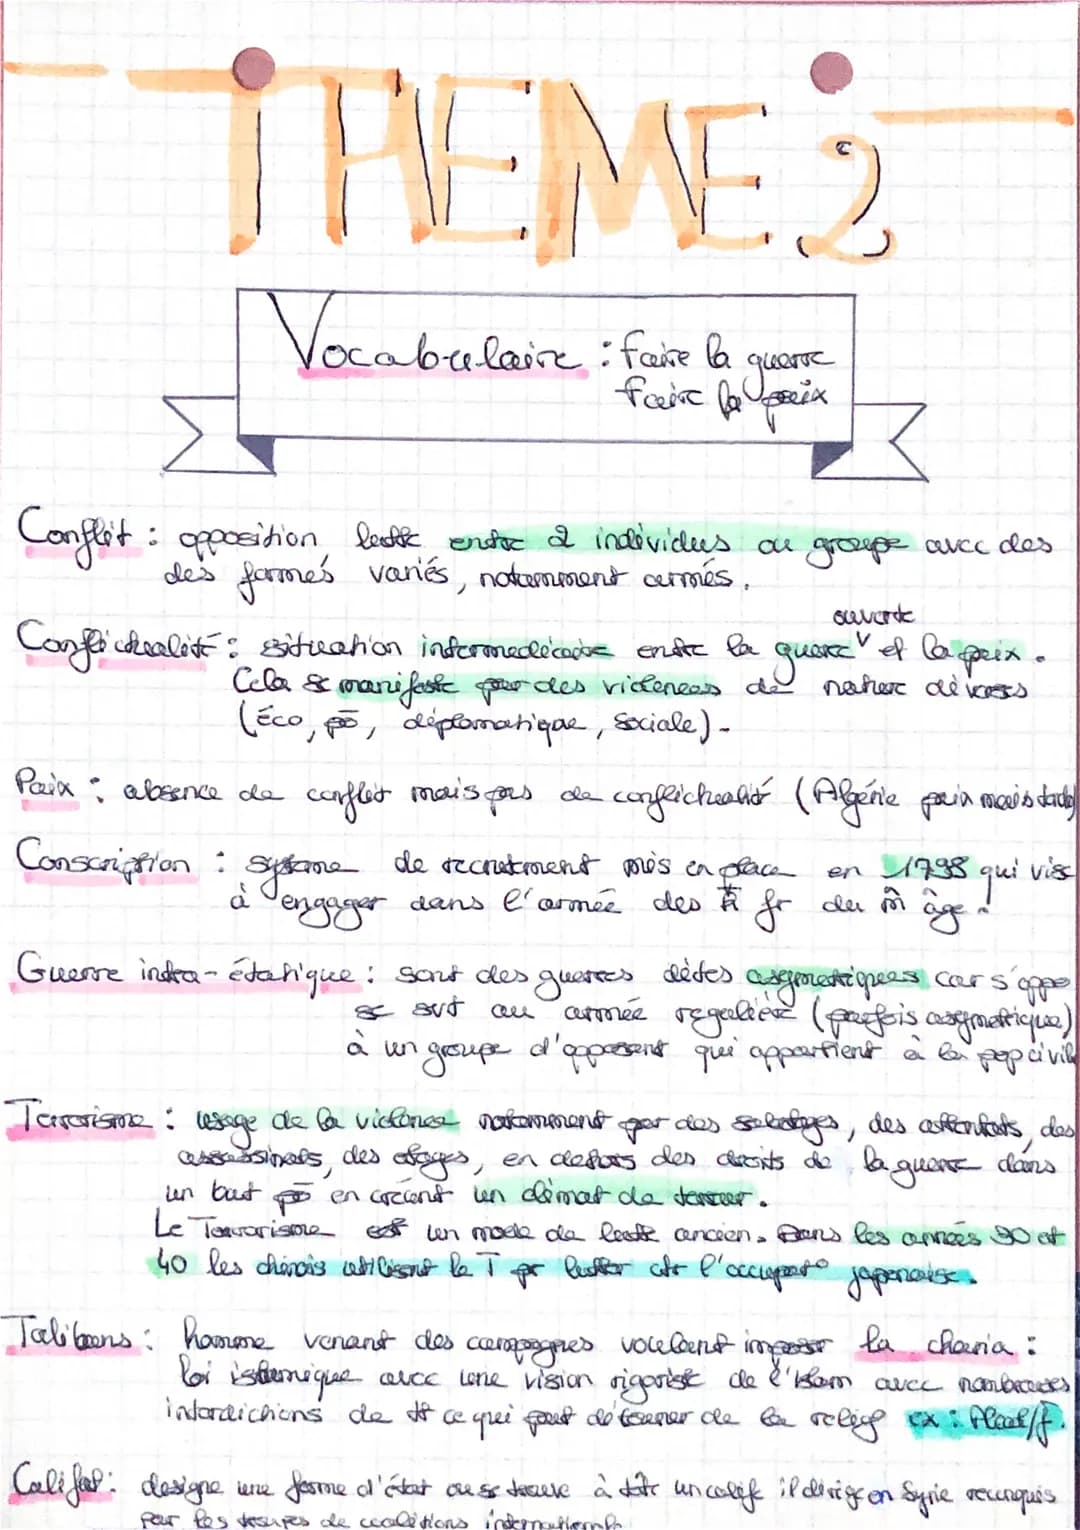 THEME 2
Vocabulaire : faire la guerre
faire la paix
Conflit : opposition, lutte entre 2 individus ou groupe avec des
des formes variés, notamment armés.
ouverte
Conflictualité : situation intermédiaire entre la guerre v et la paix.
Cela se manifeste par des violences de nature divers
(Éco, pō, diplomatique, sociale).
Paix : absence de conflit mais pas de conflictualité (Algérie paix mais
Conscription : système de recrutement mis en place en 1798 qui vise
à engager dans l'armée des fr du m̂ âge.
Guerre infra-étatique : sont des guerres dites asymétriques car s'oppo
se svt au armée regulière (parfois asymétrique)
à un groupe d'opposant qui appartient à la pop civile
Terrorisme : usage de la violence notamment par des sabotages, des attentats, des
assassinats, des otages, en dehors des droits de la guerre dans
un but pō en créant un climat de terreur.
Le Terrorisme est un mode de lutte ancien. Dans les années 30 et
40 les chinois utilisent le T pr lutter ctr l'occupat° japonaise.
Talibans : homme venant des campagnes voulant imposer la charia :
loi islamique avec une vision rigoriste de l'islam avec nombreuses
interdictions de tt ce qui peut détourner de la relig° ex : Alcool/f.
Califat : designe une forme d'état ou se trouve à tête un calife il dirige en Syrie reconquis
par les troupes de coalitions internationale